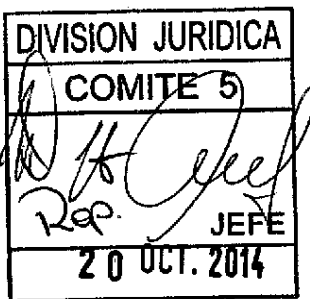 DIVISION JURIDICA
COMITE 5
Rep.
JEFE
20 OCT. 2014